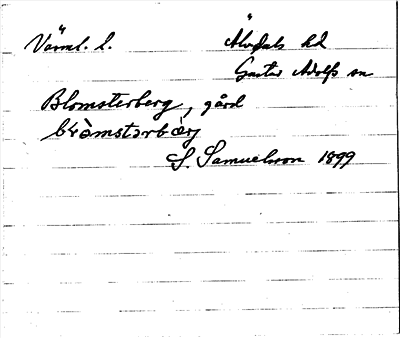 Värml. l. Älvdals hd
Gustav Adolfs sn
Blomsterberg, gård
blòmstərbær̀j
S. Samuelsson 1899